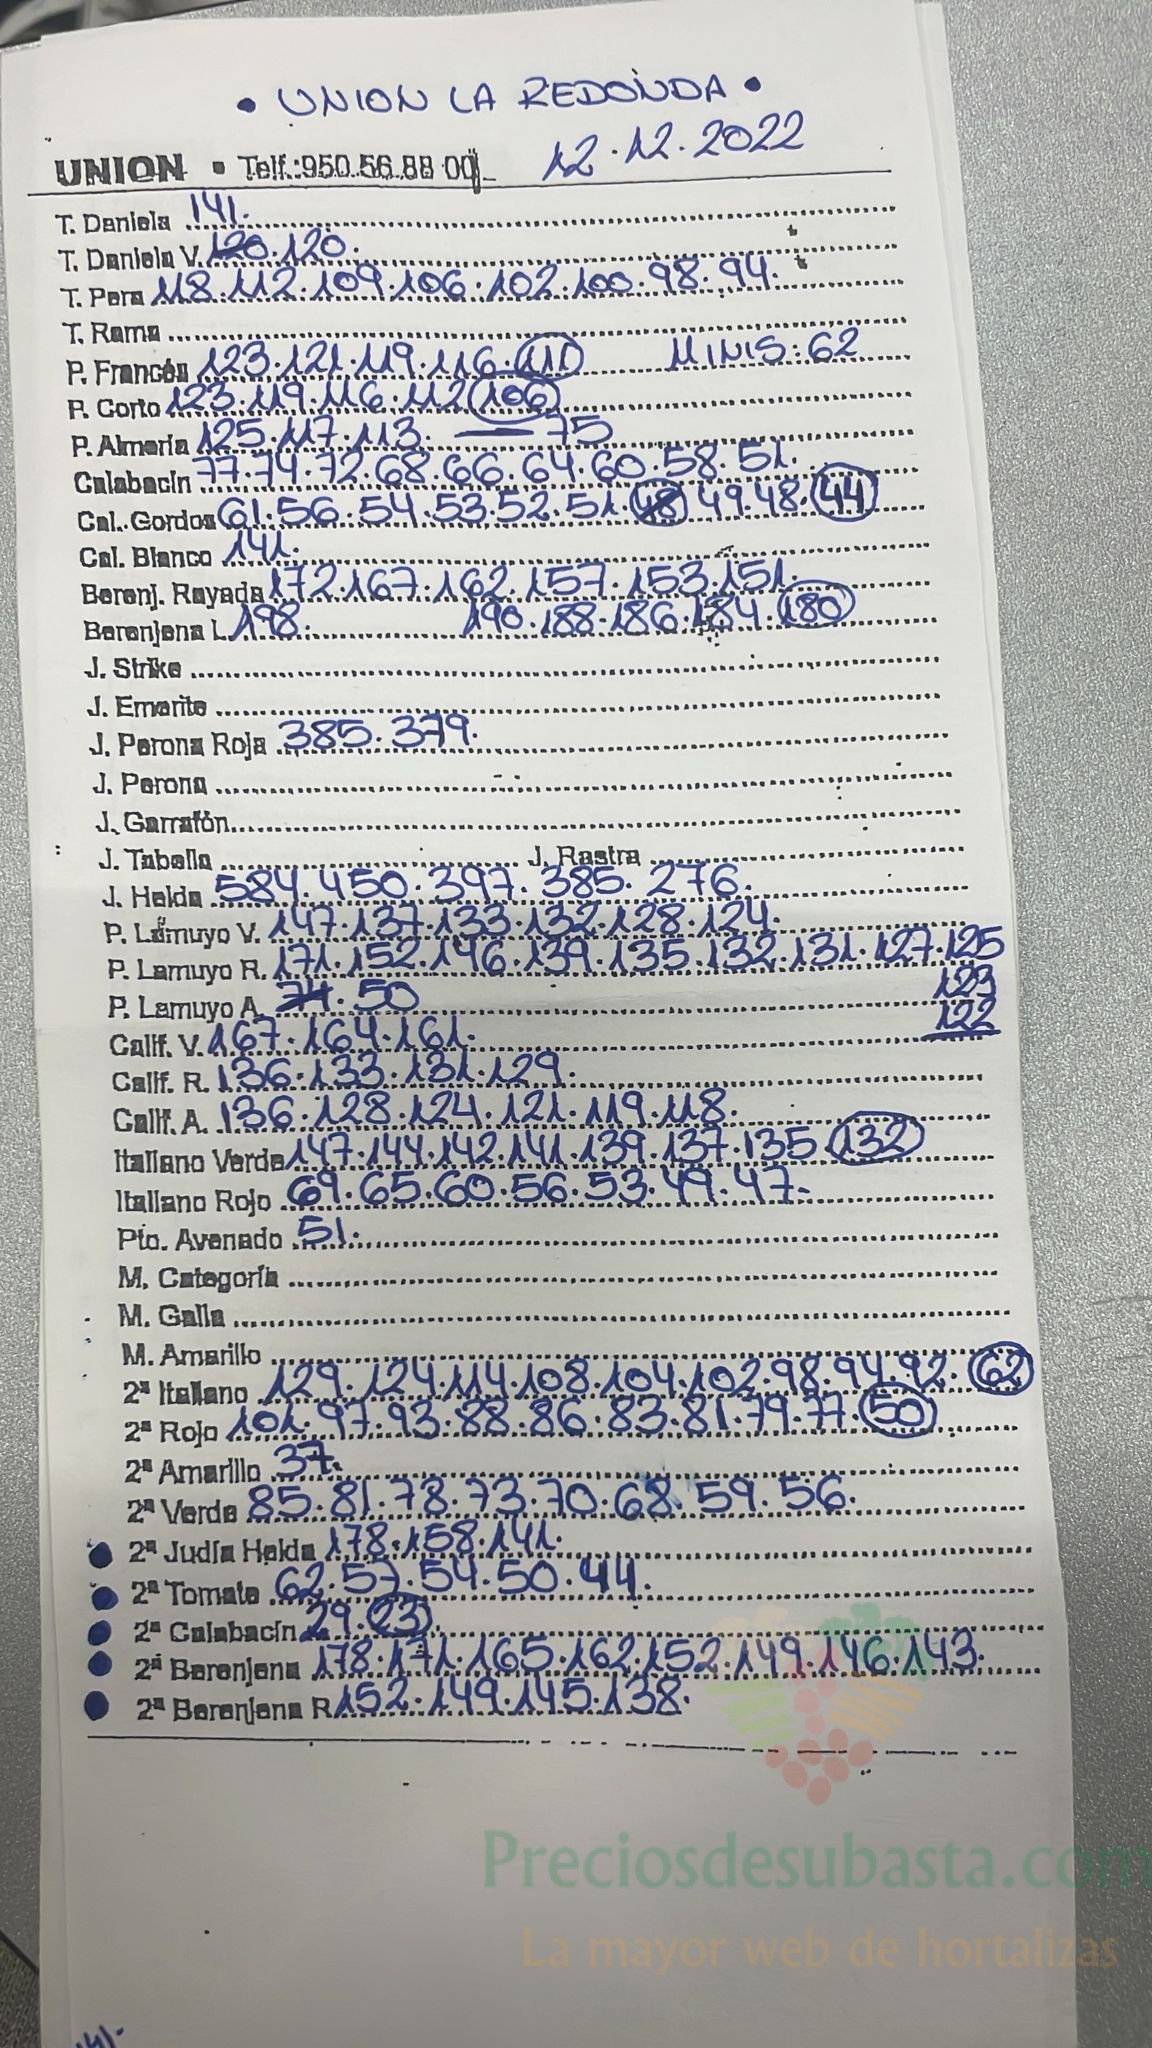 • UNION LA REDONDA •
UNION • Telf.:950.56.88 00 12.12.2022
T. Daniela 141.
T. Daniela V. 120.120.
T. Pera 118.112.109.106.102.100.98.94.
T. Rama
P. Francés 123.121.119.116.111 MINIS: 62
P. Corto 123.119.116.112 106
P. Almería 125.117.113. — 75
Calabacín 77.74.72.68.66.64.60.58.51.
Cal. Gordos 61.56.54.53.52.51.48 49.48.44
Cal. Blanco 141.
Berenj. Rayada 172.167.162.157.153.151.
Berenjena L. 198. 190.188.186.184.180
J. Strike
J. Emerite
J. Perona Roja 385.379.
J. Perona
J. Garrafón
J. Tabella J. Rastra
J. Helda 584.450.397.385.276.
P. Lamuyo V. 147.137.133.132.128.124.
P. Lamuyo R. 171.152.146.139.135.132.131.127.125
123
P. Lamuyo A. 74.50
122
Calif. V. 167.164.161.
Calif. R. 136.133.131.129.
Calif. A. 136.128.124.121.119.118.
Italiano Verde 147.144.142.141.139.137.135 132
Italiano Rojo 69.65.60.56.53.49.47.
Pto. Avenado 51.
M. Categoría
M. Galia
M. Amarillo
2ª Italiano 129.124.114.108.104.102.98.94.92.62
2ª Rojo 101.97.93.88.86.83.81.79.77.50
2ª Amarillo 37.
2ª Verde 85.81.78.73.70.68.59.56.
• 2ª Judía Helda 178.158.141.
• 2ª Tomate 62.57.54.50.44.
• 2ª Calabacín 29.23
• 2ª Berenjena 178.171.165.162.152.149.146.143.
• 2ª Berenjena R. 152.149.145.138.
Preciosdesubasta.com
La mayor web de hortalizas